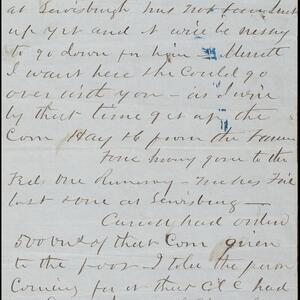 at Lewisburgh has not been sent
up yet and it will be necessy
to go down for him — Merritt
I want here she could go
over with you — as I will
by that time get up the
Corn Hay &c from the Farm
gone to the
Feds one Runaway — makes Five
lost some at Lewisburg —
had order
500 of that Corn given
to the poor — I told the person
Coming for it that C & C had